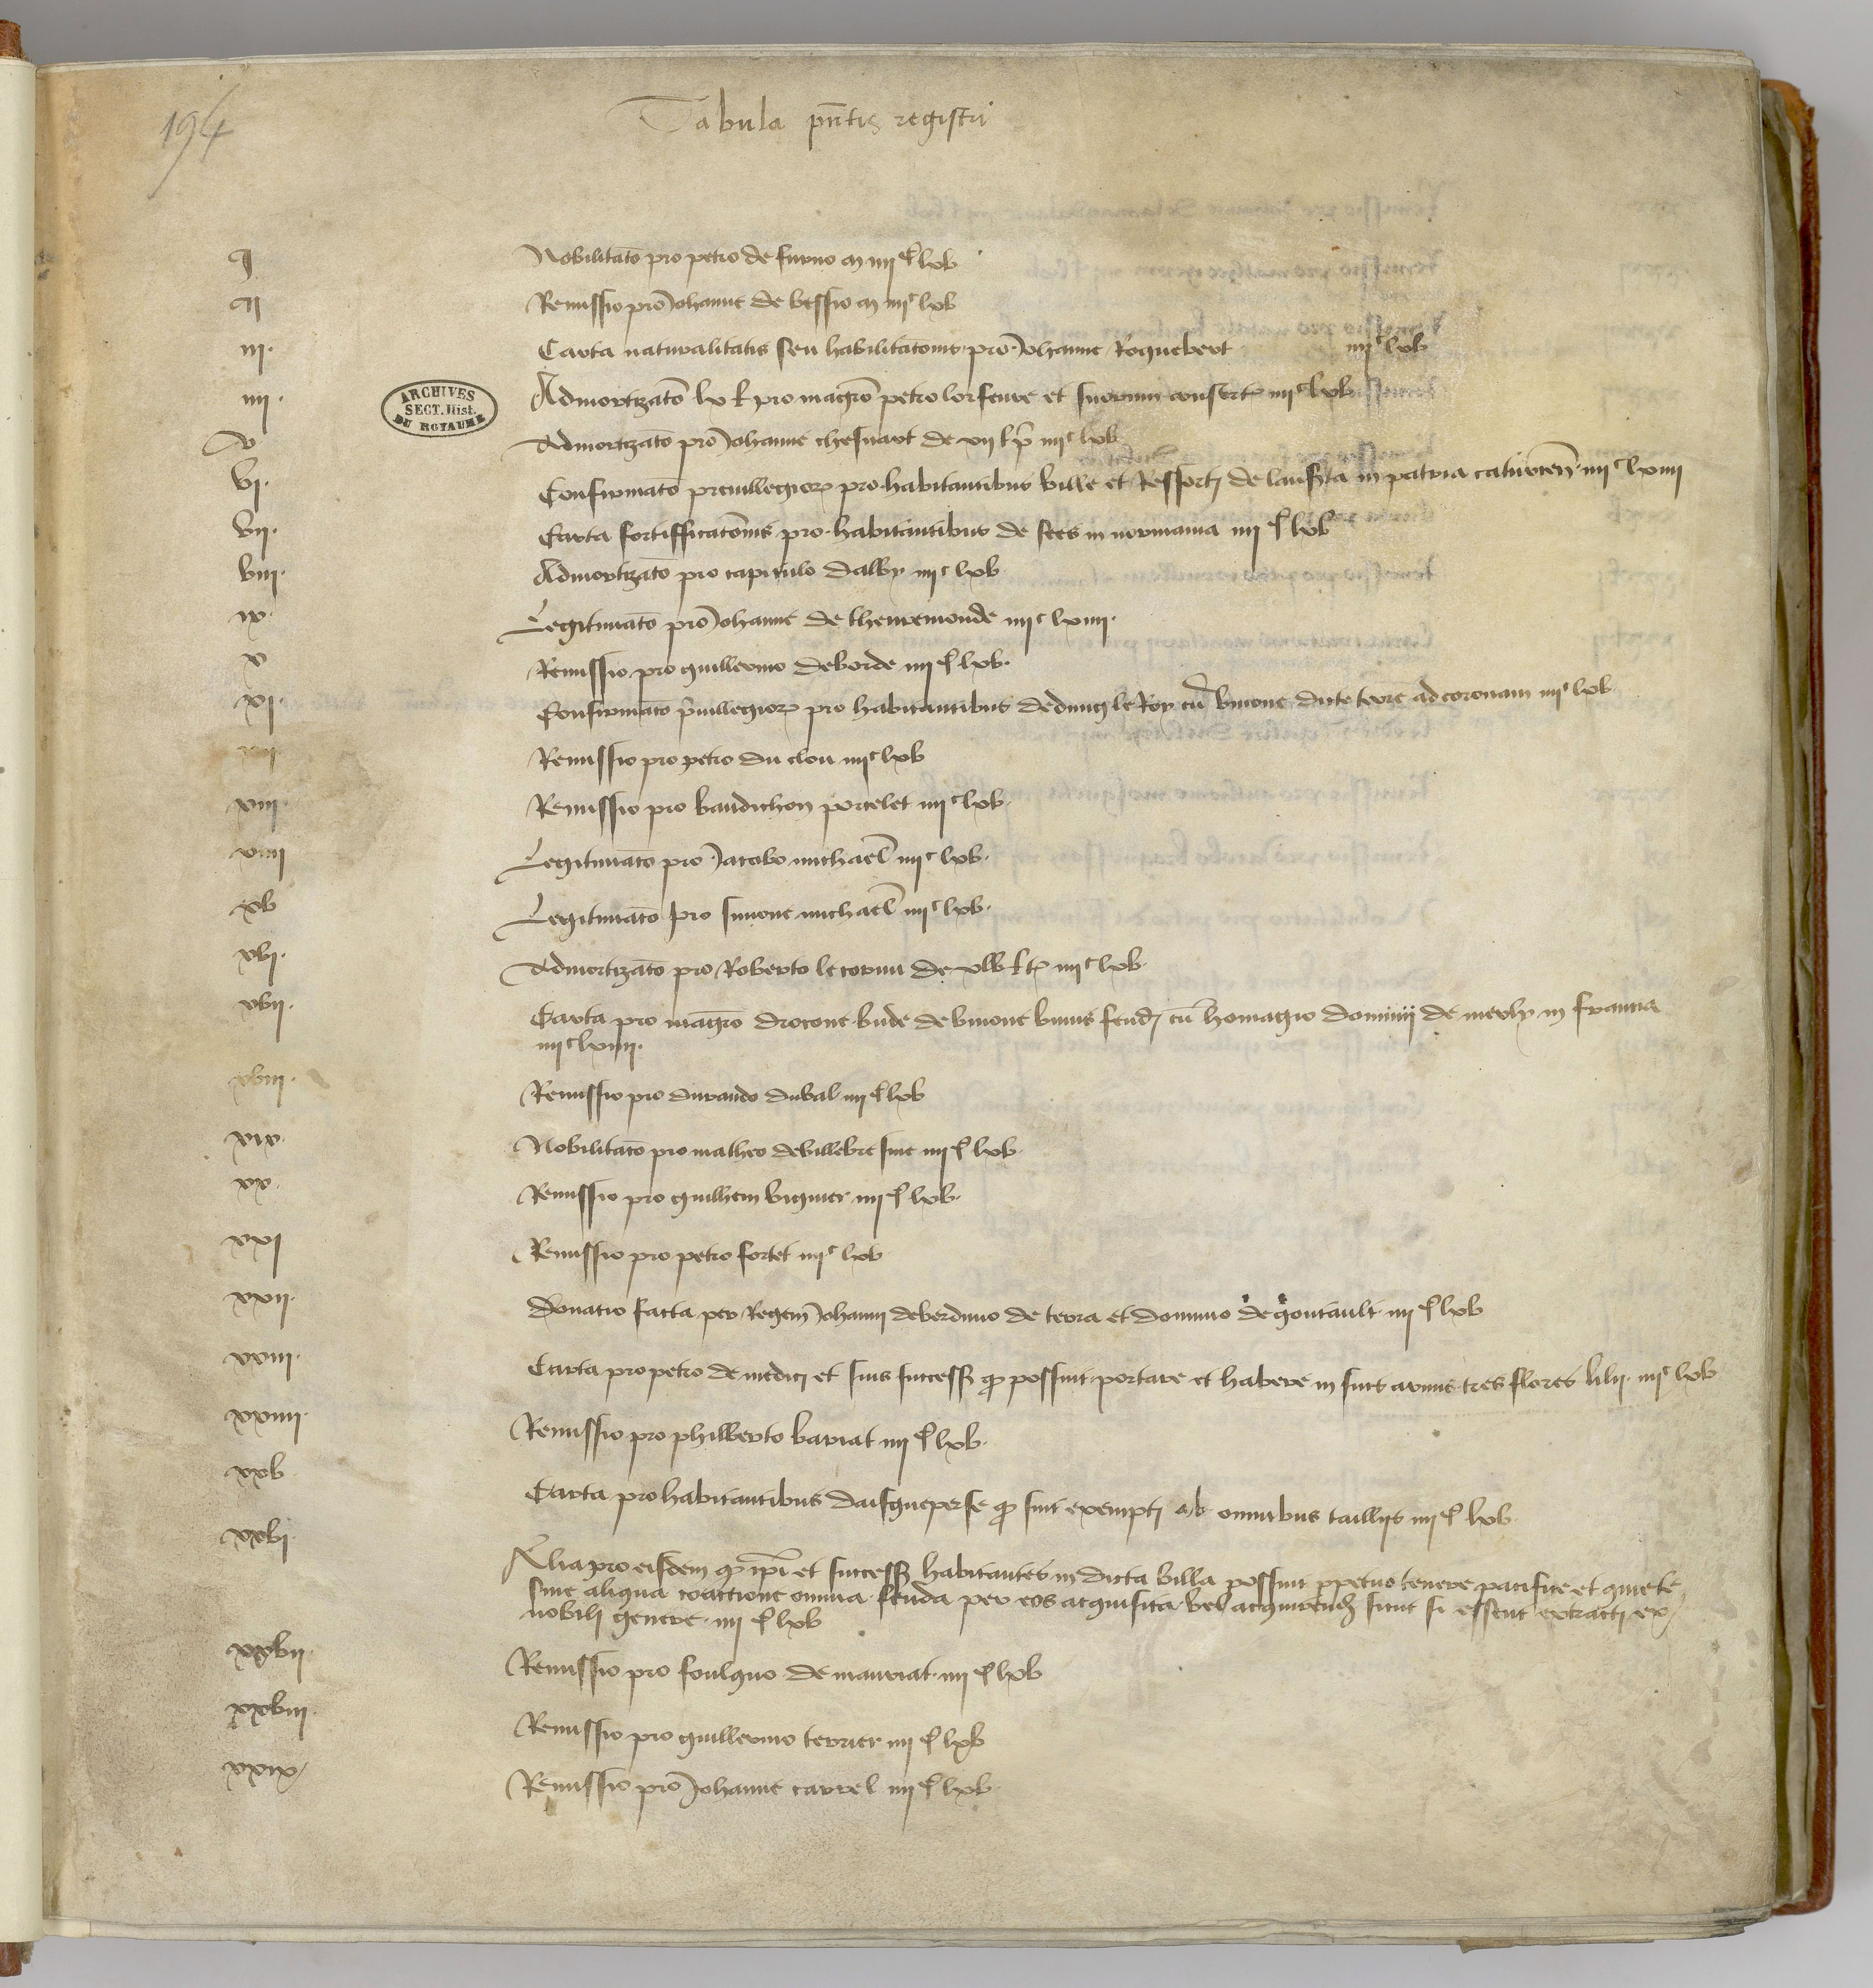 194
Tabula pñtis registri
I Nobilitatō pro petro de furno M IIIIc lxv
II Remissio pro Johanne de vessio M IIIIc lxv
III. Carta naturalitatis seu habilitatonis pro Johanne Roquebert IIIIc lxv
IIII. Admortizatō lx £ pro magrō petro lorfevre et suorum consort IIIIc lxv
ARCHIVES
SECT. Hist.
DU ROYAUME
V Admortizatō pro Johanne chesnart de VII £ p IIIIc lxv
VI. Confirmatō previllegior pro habitantibus ville et Ressorti de lauserta in patria caturcen̄ IIIIc lxIIII
VII. Carta fortifficatōnis pro habitantibus de sees in normania IIII c lxv
VIII. Admortizatō pro capitulo dalby IIIIc lxv
IX. Legitimatō pro Johanne de theuremonde IIIIc lxIIII.
X Remissio pro guillermo deborde IIII c lxv.
XI. Confirmatō pvillegior pro habitantibus dedung le Roy cū unione dicte terre ad coronam IIIIc lxv
XII Remissio pro petro du clou IIIIc lxv
XIII. Remissio pro baudichon porcelet IIIIc lxv.
XIIII Legitimatō pro Jacobo michael IIIIc lxv.
XV Legitimatō pro simone michael IIIIc lxv.
XVI. Admortizatō pro Roberto le cornu de £ t IIIIc lxv.
XVII. Carta pro magrō drocone bude de unione unius feudi cū homagio dominii de merly in francia
IIIIc lxIIII.
XVIII. Remissio pro durando duval IIII c lxv
XIX. Nobilitatō pro matheo devillebresme IIII c lxv.
XX. Remissio pro guilhem viguier IIII c lxv.
XXI Remissio pro petro fortet IIIIc lxv
XXII. Donatio facta per Regem Johanni deverduno de terra et dominio de gontault IIII c lxv
XXIII. Carta pro petro de medici et suis success q possint portare et habere in suis armis tres flores lilii. IIIIc lxv
XXIIII. Remissio pro philberto bariat IIII c lxv.
XXV Carta pro habitantibus daisgueperse q sint exempti ab omnibus tailliis IIII c lxv.
XXVI. Alia pro eisdem q ipi et success habitantes in dicta villa possint ppetuo tenere pacifice et quiete
sine aliqua coactione omnia feuda per eos acquisita vel acquirend sicut si essent extracti ex
nobili genere. IIII c lxv
XXVII. Remissio pro foulquo de mauriat. IIII c lxv
XXVIII. Remissio pro guillermo terrier IIII c lxv
XXIX Remissio pro Johanne carrel IIII c lxv.